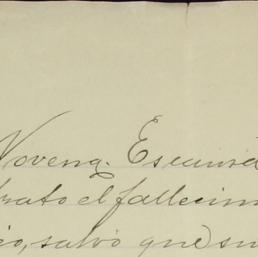 Novena. Es caució
trato el fallecim
io, salvo que su